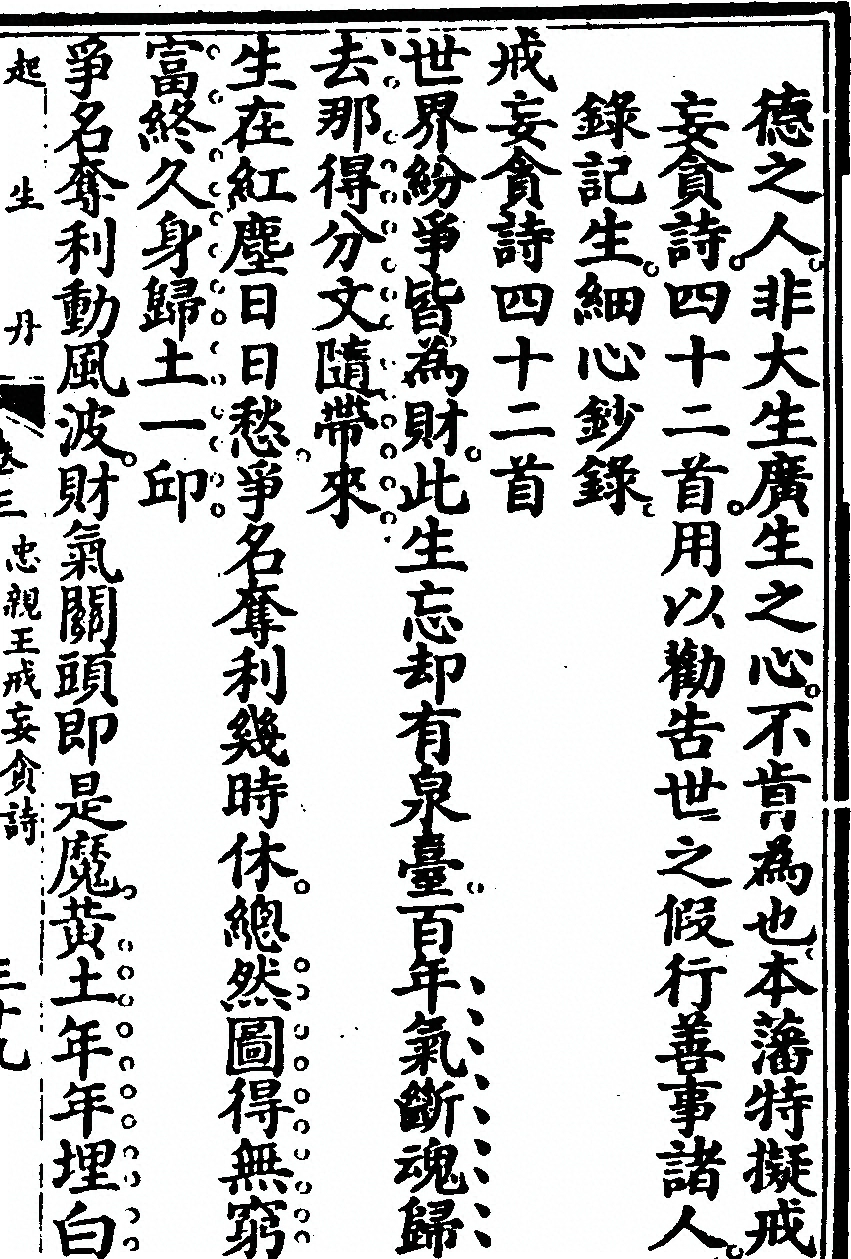 德之人非大生廣生之心不肯為也本藩特擬戒
妄貪詩四十二首用以勸告世之假行善事諸人
錄記生細心鈔錄
戒妄貪詩四十二首
世界紛爭皆為財此生忘却有泉臺百年氣斷魂歸
去那得分文隨帶來
生在紅塵日日愁爭名奪利幾時休總然圖得無窮
富終久身歸土一邱
爭名奪利動風波財氣關頭即是魔黃土年年埋白
起生丹 卷三 忠親王戒妄貪詩 三十九